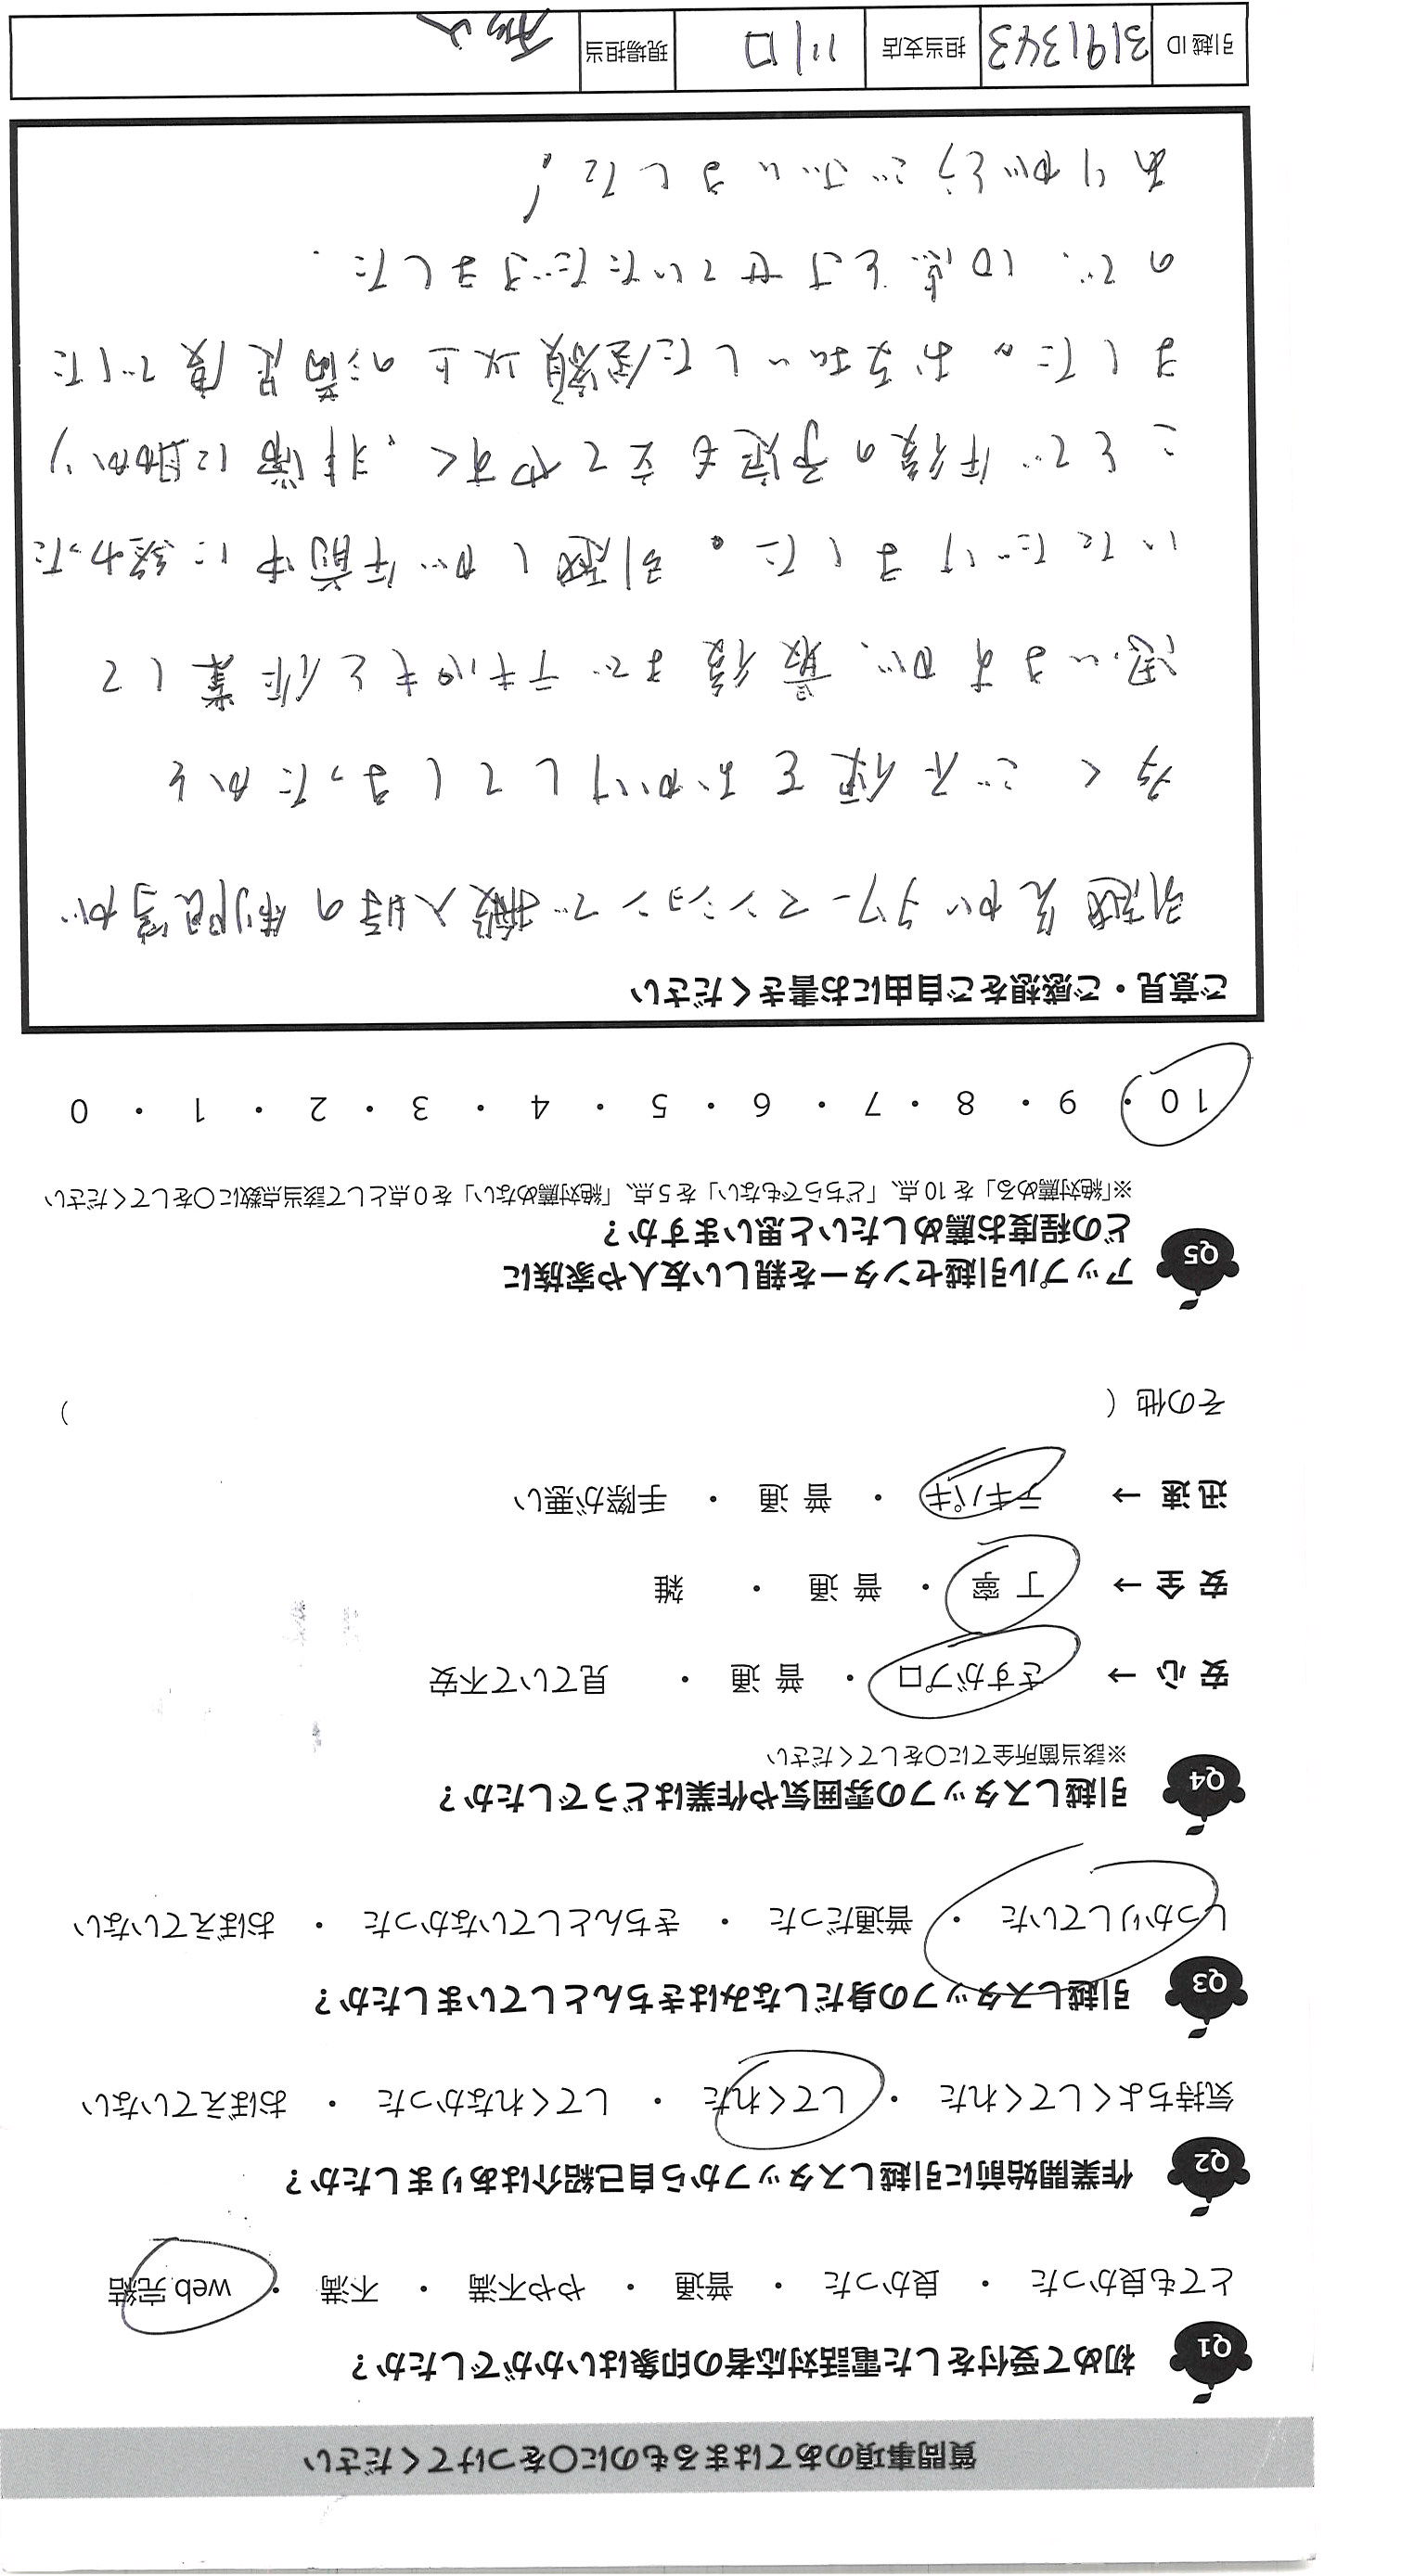 質問事項のあてはまるものに○をつけてください
Q1 初めて受付をした電話対応者の印象はいかがでしたか？
とても良かった ・ 良かった ・ 普通 ・ やや不満 ・ 不満 ・ web 完結
Q2 作業開始前に引越しスタッフから自己紹介はありましたか？
気持ちよくしてくれた ・ してくれた ・ してくれなかった ・ おぼえていない
Q3 引越しスタッフの身だしなみはきちんとしていましたか？
しっかりしていた ・ 普通だった ・ きちんとしていなかった ・ おぼえていない
Q4 引越しスタッフの雰囲気や作業はどうでしたか？
※該当箇所全てに○をしてください
安 心 → さすがプロ ・ 普 通 ・ 見ていて不安
安 全 → 丁 寧 ・ 普 通 ・ 雑
迅 速 → テキパキ ・ 普 通 ・ 手際が悪い
その他（ ）
Q5 アップル引越センターを親しい友人や家族に
どの程度お薦めしたいと思いますか？
※「絶対薦める」を 10 点、「どちらでもない」を 5 点、「絶対薦めない」を 0 点として該当点数に○をしてください
10 ・ 9 ・ 8 ・ 7 ・ 6 ・ 5 ・ 4 ・ 3 ・ 2 ・ 1 ・ 0
ご意見・ご感想をご自由にお書きください
引越先がタワーマンションで搬入時の制限等が
多くご不便をおかけしてしまったかと
思いますが、最後までテキパキと作業して
いただけました。引越しが午前中に終わった
ことで午後の予定も立てやすく、非常に助かり
ました。お支払いした金額以上の満足度でした
ので、10点とさせていただきました.
ありがとうございました!
引越 ID 3191343 担当支店 川口 現場担当